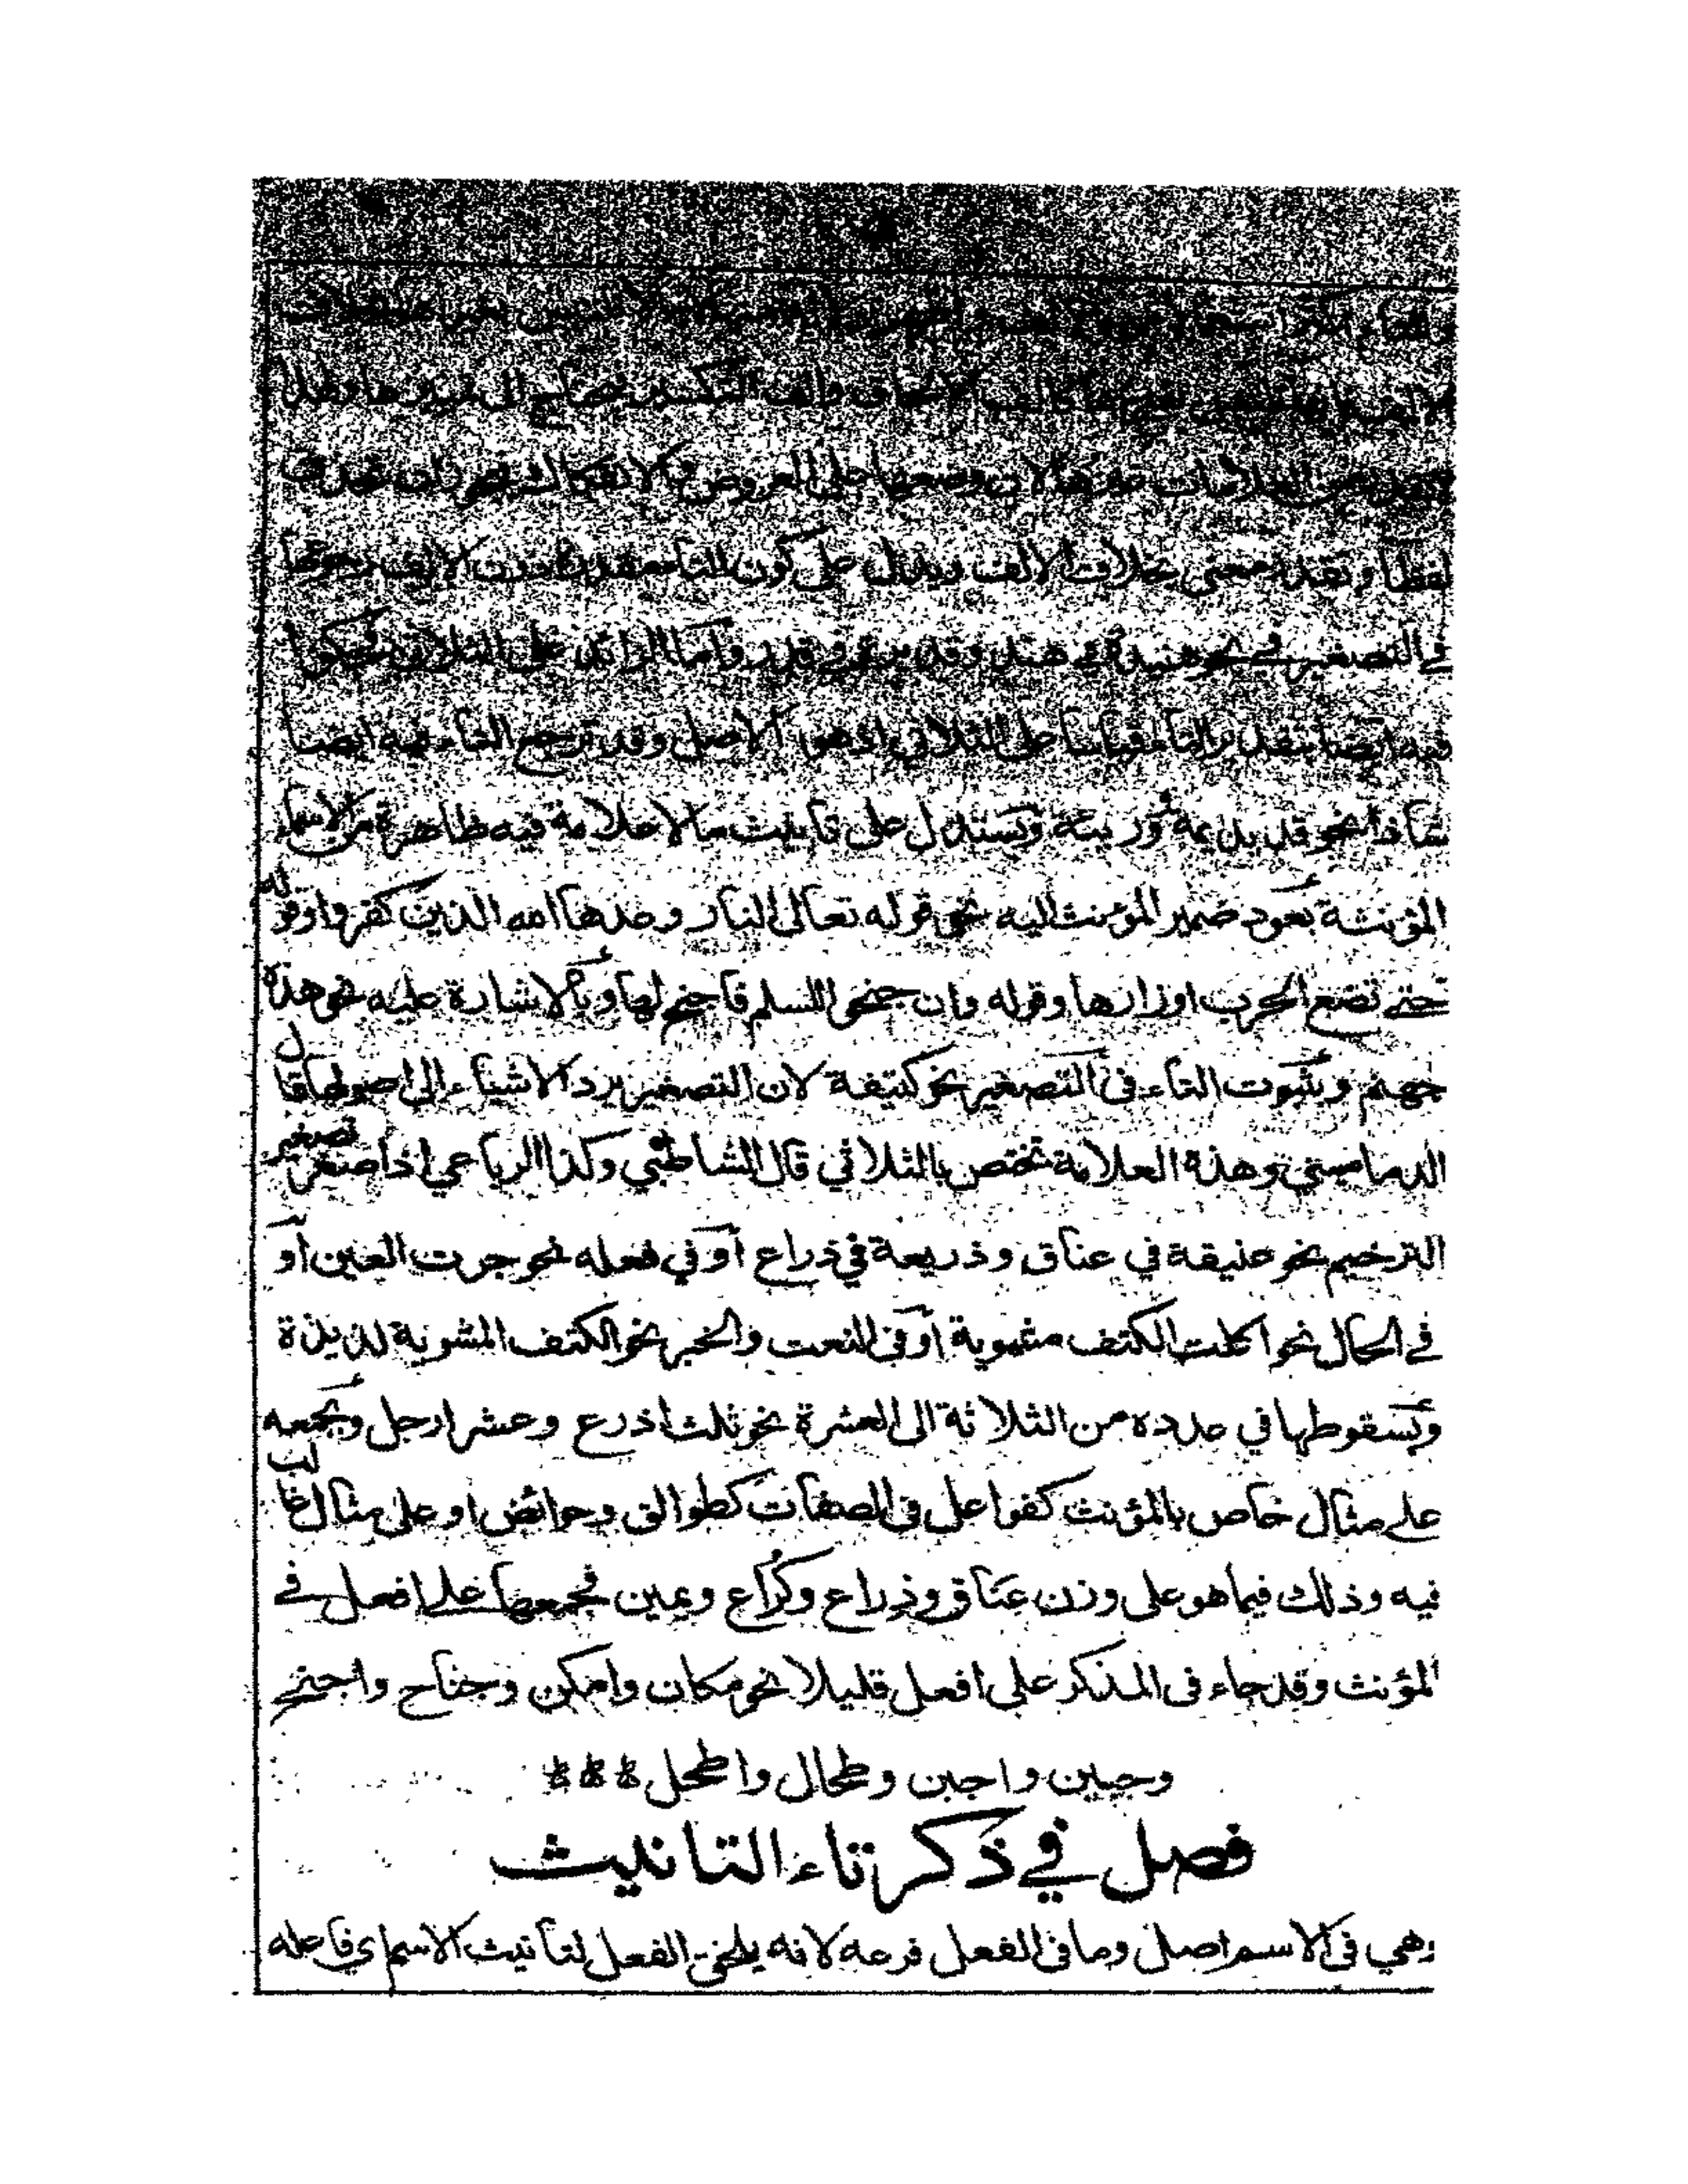 والف التكسير
لان وضعها على العروض والانفكاك فيجوز ان تحذف
لفظا وتقدر معنى بخلاف الالف ويدل على كون التاء مقدرة دون الالف رجوعها
في التصغير في نحو هنيدة في هند وقديرة في قدر واما الزائد على الثلاثي فحكموا
فيه ايضا بتقدير التاء قياسا على الثلاثي اذ هو الاصل وقد ترجع التاء فيه ايضا
شاذا نحو قديديمة ووريئة ويستدل على تأنيث ما لا علامة فيه ظاهرة من الاسماء
المؤنثة بعود ضمير المؤنث اليه نحو قوله تعالى النار وعدها الله الذين كفروا وقوله
حتى تضع الحرب اوزارها وقوله وان جنحوا للسلم فاجنح لها وبالاشارة عليه نحو هذه
جهنم وبثبوت التاء في التصغير نحو كتيفة لان التصغير يرد الاشياء الى اصولها قال
الدماميني وهذه العلامة تختص بالثلاثي قال الشاطبي وكذا الرباعي اذا صغر تصغير
الترخيم نحو عنيقة في عناق وذريعة في ذراع أو في فعله نحو جرت العين أو
في الحال نحو اكلت الكتف مشوية أو في النعت والخبر نحو الكتف المشوية لذيذة
وبسقوطها في عدده من الثلاثة الى العشرة نحو ثلث اذرع وعشر ارجل وبجمعه
على مثال خاص بالمؤنث كفواعل في الصفات كطوالق وحوائض او على مثال غالب
فيه وذلك فيما هو على وزن عناق وذراع وكُراع ويمين فجمعها على افعل في
المؤنث وقد جاء في المذكر على افعل قليلا نحو مكان وامكن وجناح واجنح
وجبين واجبن وطحال واطحل
فصل في ذكر تاء التانيث
وهي في الاسم اصل وما في الفعل فرعه لانه يلحق الفعل لتأنيث الاسم اي فاعله